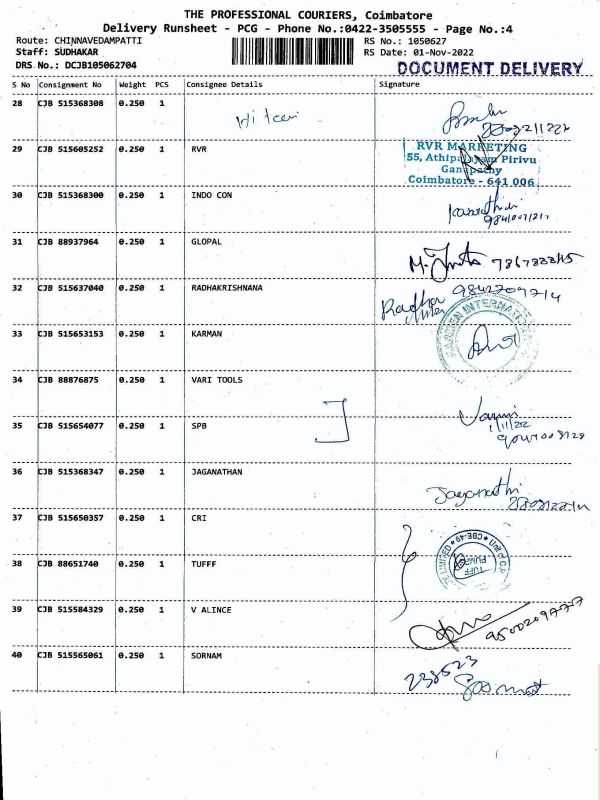 THE PROFESSIONAL COURIERS, Coimbatore
Delivery Runsheet - PCG - Phone No.:0422-3505555 - Page No.:4
Route: CHINNAVEDAMPATTI RS No.: 1050627
Staff: SUDHAKAR RS Date: 01-Nov-2022
DRS No.: DCJB105062704 DOCUMENT DELIVERY
S No Consignment No Weight PCS Consignee Details Signature
28 CJB 515368308 0.250 1
29 CJB 515605252 0.250 1 RVR
RVR MARKETING
55, Athipalayam Pirivu
Ganapathy
Coimbatore - 641 006
30 CJB 515368300 0.250 1 INDO CON
31 CJB 88937964 0.250 1 GLOPAL
32 CJB 515637040 0.250 1 RADHAKRISHNANA
Radha 9842709714
33 CJB 515653153 0.250 1 KARMAN
34 CJB 88876875 0.250 1 VARI TOOLS
35 CJB 515654077 0.250 1 SPB
36 CJB 515368347 0.250 1 JAGANATHAN
Jaganathi
37 CJB 515650357 0.250 1 CRI
38 CJB 88651740 0.250 1 TUFFF
39 CJB 515584329 0.250 1 V ALINCE
40 CJB 515565061 0.250 1 SORNAM
238523